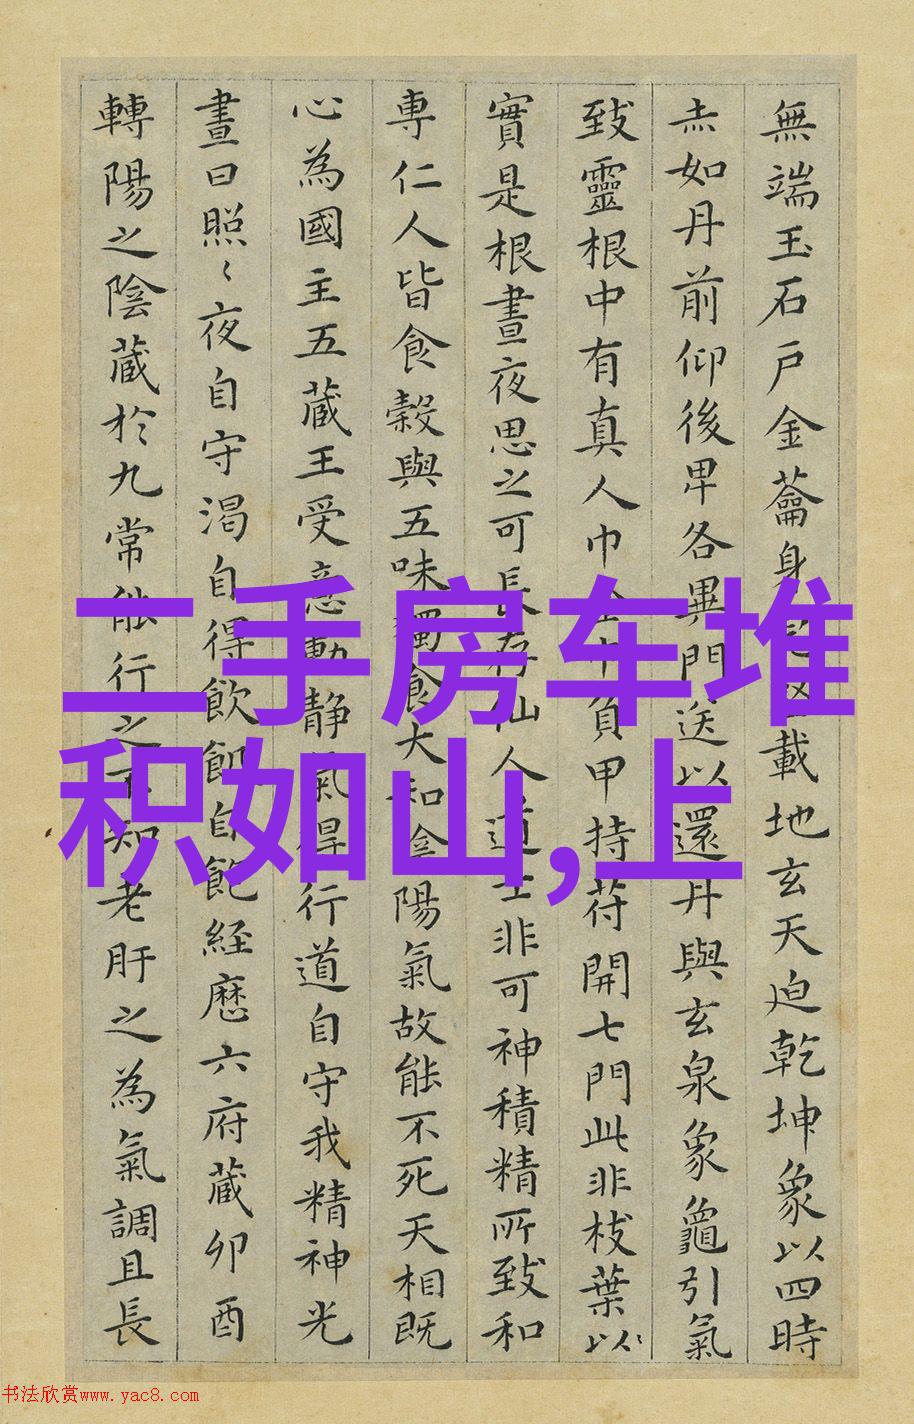 二手房车堆
积如山,上
無端玉石戸金蘥身載地玄天迫乾坤象以四時
赤如丹前仰後卑各異門送以還丹與玄泉象龜引氣
致靈根中有真人巾金巾負甲持苻開七門此非枝葉以
實是根晝夜思之可長存仙人道士非可神積精所致和
專仁人皆食穀與五味獨食大和陰陽氣故能不死天相既
心為國主五蔵王受意動静氣得行道自守我精神光
晝日照〻夜自守渴自得飲飢自飽経歴六府蔵卯酉
轉陽之陰蔵於九常能行之不知老肝之為氣調且長
书法欣赏www.yac8.com